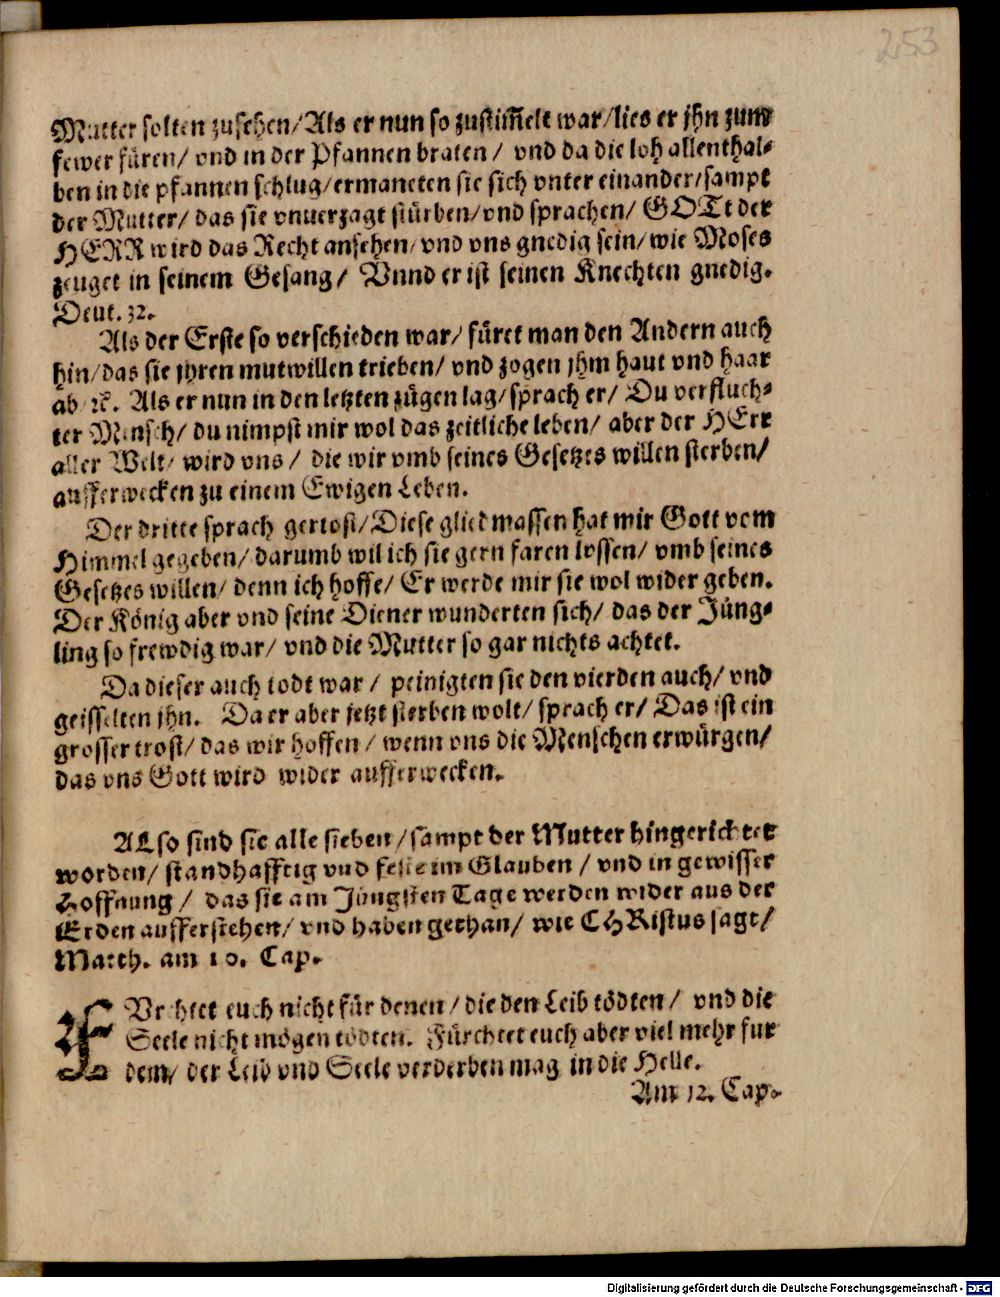 253
Mutter solten zusehen/Als er nun so zustim̃elt war/lies er jhn zum
fewer füren/ vnd in der Pfannen braten/ vnd da die loh allenthal-
ben in die pfannen schlug/ermaneten sie sich vnter einander/sampt
der Mutter/ das sie vnuerzagt stürben/vnd sprachen/ GOTt der
HERR wird das Recht ansehen/vnd vns gnedig sein/wie Moses
zeuget in seinem Gesang/ Vnnd er ist seinen Knechten gnedig.
Deut. 32.
Als der Erste so verschieden war/ füret man den Andern auch
hin/das sie jhren mutwillen trieben/ vnd zogen jhm haut vnd haar
ab/ꝛc. Als er nun in den letzten zügen lag/sprach er/ Du verfluch-
ter Mensch/ du nimpst mir wol das zeitliche leben/ aber der HErr
aller Welt/ wird vns/ die wir vmb seines Gesetzes willen sterben/
aufferwecken zu einem Ewigen Leben.
Der dritte sprach getrost/Diese gliedmassen hat mir Gott vom
Himmel gegeben/darumb wil ich sie gern faren lossen/ vmb seines
Gesetzes willen/ denn ich hoffe/ Er werde mir sie wol wider geben.
Der König aber vnd seine Diener wunderten sich/ das der Jüng-
ling so frewdig war/ vnd die Mutter so gar nichts achtet.
Da dieser auch todt war/ peinigten sie den vierden auch/ vnd
geisselten jhn. Da er aber jetzt sterben wolt/ sprach er/ Das ist ein
grosser trost/das wir hoffen/ wenn vns die Menschen erwürgen/
das vns Gott wird wider aufferwecken.
ALso sind sie alle sieben/sampt der Mutter hingerichtet
worden/ standhafftig vnd feste im Glauben/ vnd in gewisser
Hoffnung/ das sie am Jüngsten Tage werden wider aus der
Erden aufferstehen/ vnd haben gethan/ wie CHRistus sagt/
Matth. am 10. Cap.
FVrchtet euch nicht für denen/die den Leib tödten/ vnd die
Seele nicht mögen tödten. Fürchtet euch aber viel mehr fur
dem/ der Leib vnd Seele verderben mag in die Helle.
Am 12. Cap.
Digitalisierung gefördert durch die Deutsche Forschungsgemeinschaft - DFG